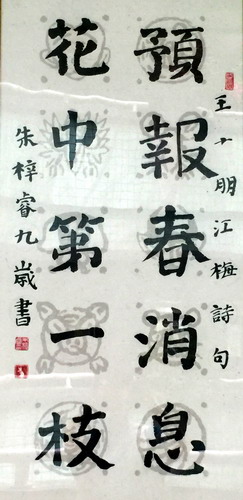 王十朋江梅詩句
預報春消息
花中第一枝
朱梓睿九歲書